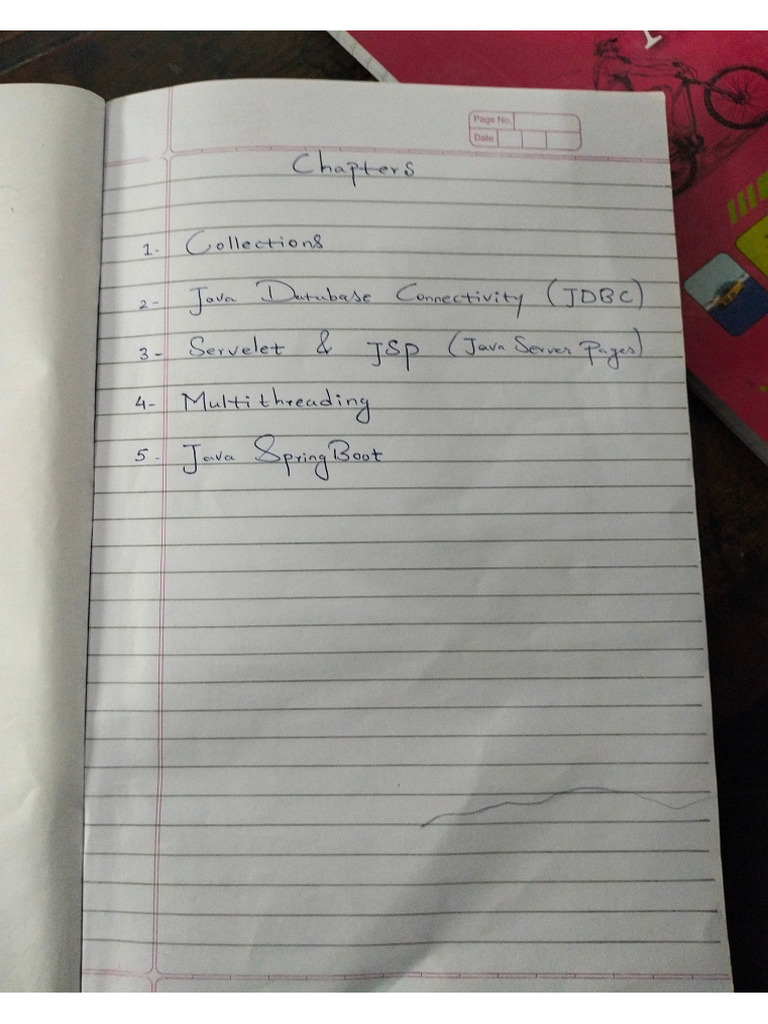 Page No.
Date
Chapters
1- Collections
2- Java Database Connectivity (JDBC)
3- Servelet & JSP (Java Server Pages)
4- Multithreading
5- Java SpringBoot